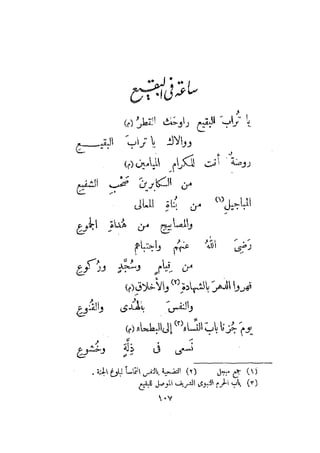 ساعة في البقيع
يا تُراب البقيع راوحك القطر (م)
ووالاك يا تراب البقيــــع
روضة أنت للكرام الميامين (م)
من الكابرين صَحْب الشفيع
المباجيل (١) من بُناة المعالى
والمصابيح من هُداة الجموع
رضىَ اللهُ عنهم واجتباهم
من قيامٍ وسُجَّدٍ ورُكوع
قهروا الدهر بالشهادة (٢) والأخلاق (م)
والنفس بالهُدى والقُنوع
يوم جُزنا باب النِّساء (٣) إلى البطحاء (م)
نَسعى فى ذِلّةٍ وخُشوع
(١) جمع مبجل (٢) التضحية بالنفس التماسا لبلوغ الجنة .
(٣) باب الحرم النبوى الشريف الموصل للبقيع
١٠٧